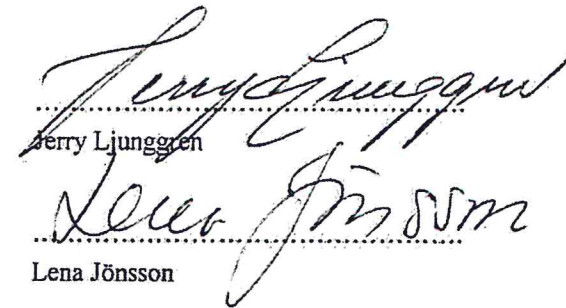 Jerry Ljunggren
Jerry Ljunggren
Lena Jönsson
Lena Jönsson